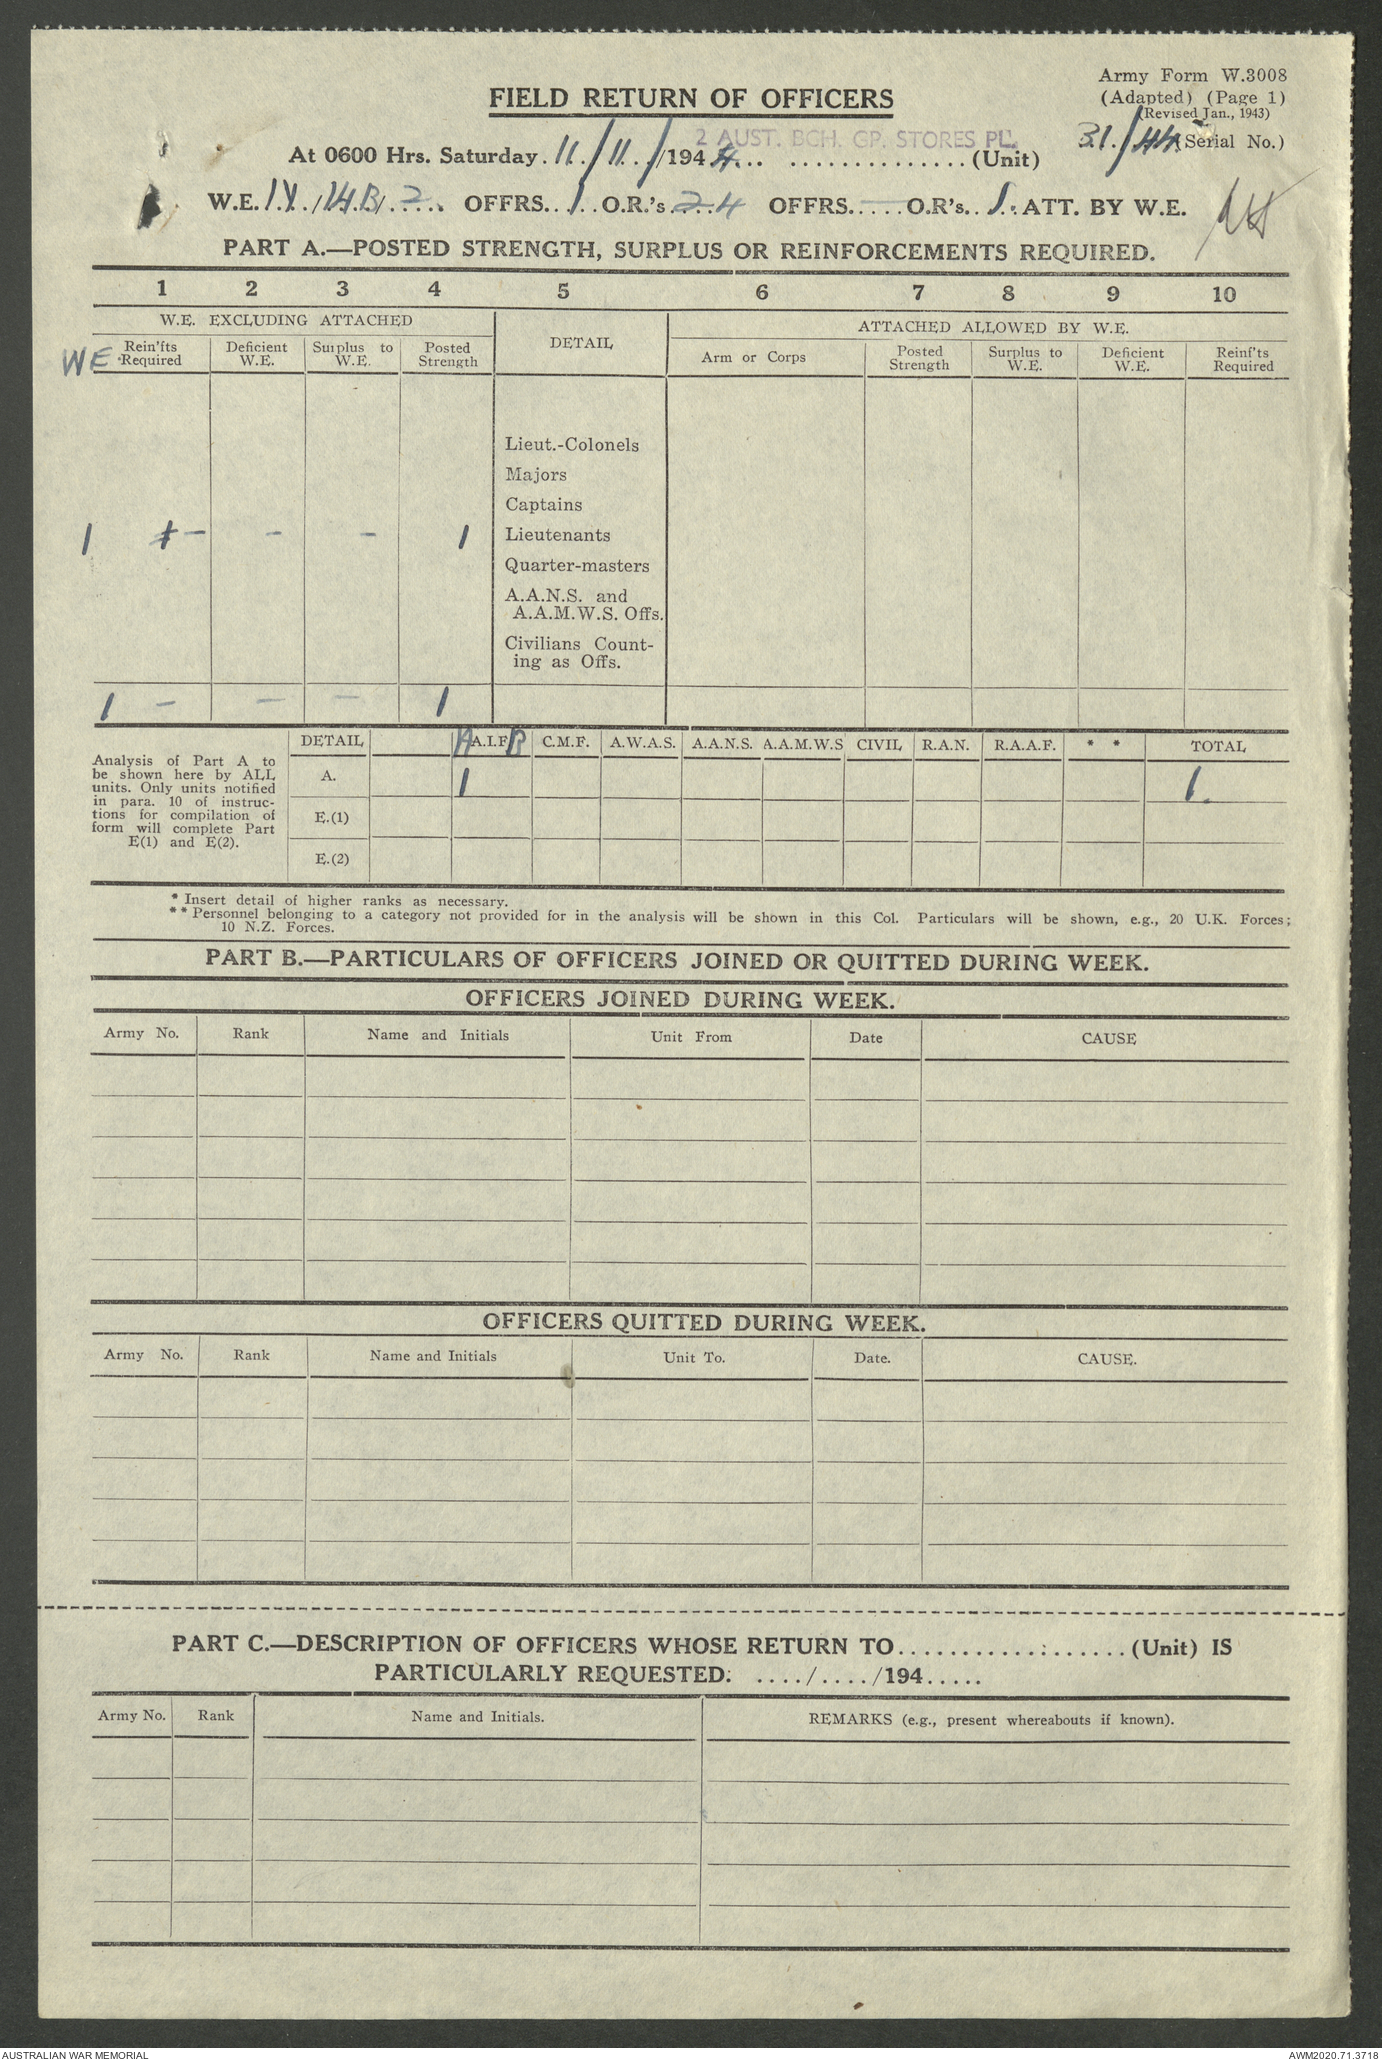 Army Form W.3008
FIELD RETURN OF OFFICERS
(Adapted) (Page 1)
(Revised Jan., 1943)
2 AUST. BCH. GP. STORES PL.
31/44 (Serial No.)
At 0600 Hrs. Saturday. 11/11/1944... .............. (Unit)
W.E. OFFRS. 1 O.R.'s 24 OFFRS. — O.R's. 1 ATT. BY W.E.
PART A.—POSTED STRENGTH, SURPLUS OR REINFORCEMENTS REQUIRED.
1 2 3 4 5 6 7 8 9 10
W.E. EXCLUDING ATTACHED
DETAIL
ATTACHED ALLOWED BY W.E.
WE
Rein'fts Required
Deficient W.E.
Surplus to W.E.
Posted Strength
Arm or Corps
Posted Strength
Surplus to W.E.
Deficient W.E.
Reinf'ts Required
Lieut.-Colonels
Majors
Captains
1 – – – 1 Lieutenants
Quarter-masters
A.A.N.S. and
A.A.M.W.S. Offs.
Civilians Count-
ing as Offs.
1 – – – 1
Analysis of Part A to
be shown here by ALL
units. Only units notified
in para. 10 of instruc-
tions for compilation of
form will complete Part
E(1) and E(2).
DETAIL A.I.F. C.M.F. A.W.A.S. A.A.N.S. A.A.M.W.S CIVIL R.A.N. R.A.A.F. * * TOTAL
A. 1 1.
E.(1)
E.(2)
* Insert detail of higher ranks as necessary.
** Personnel belonging to a category not provided for in the analysis will be shown in this Col. Particulars will be shown, e.g., 20 U.K. Forces;
10 N.Z. Forces.
PART B.—PARTICULARS OF OFFICERS JOINED OR QUITTED DURING WEEK.
OFFICERS JOINED DURING WEEK.
Army No. Rank Name and Initials Unit From Date CAUSE
OFFICERS QUITTED DURING WEEK.
Army No. Rank Name and Initials Unit To. Date. CAUSE.
PART C.—DESCRIPTION OF OFFICERS WHOSE RETURN TO.................. (Unit) IS
PARTICULARLY REQUESTED. ..../..../194.....
Army No. Rank Name and Initials. REMARKS (e.g., present whereabouts if known).
AUSTRALIAN WAR MEMORIAL
AWM2020.71.3718